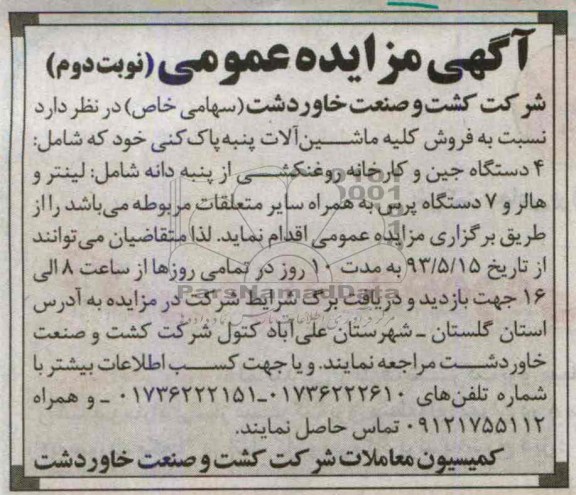 آگهی مزایده عمومی (نوبت دوم)
شرکت کشت و صنعت خاوردشت (سهامی خاص) در نظر دارد
نسبت به فروش کلیه ماشین‌آلات پنبه پاک کنی خود که شامل:
۴ دستگاه جین و کارخانه روغنکشی از پنبه دانه شامل: لینتر و
هالر و ۷ دستگاه پرس به همراه سایر متعلقات مربوطه می‌باشد را از
طریق برگزاری مزایده عمومی اقدام نماید. لذا متقاضیان می‌توانند
از تاریخ ۹۳/۵/۱۵ به مدت ۱۰ روز در تمامی روزها از ساعت ۸ الی
۱۶ جهت بازدید و دریافت برگ شرایط شرکت در مزایده به آدرس
استان گلستان ـ شهرستان علی‌آباد کتول شرکت کشت و صنعت
خاوردشت مراجعه نمایند. و یا جهت کسب اطلاعات بیشتر با
شماره تلفن‌های ۰۱۷۳۶۲۲۲۶۱۰ـ۰۱۷۳۶۲۲۲۱۵۱ ـ و همراه
۰۹۱۲۱۷۵۵۱۱۲ تماس حاصل نمایند.
کمیسیون معاملات شرکت کشت و صنعت خاوردشت
ParsNamadData